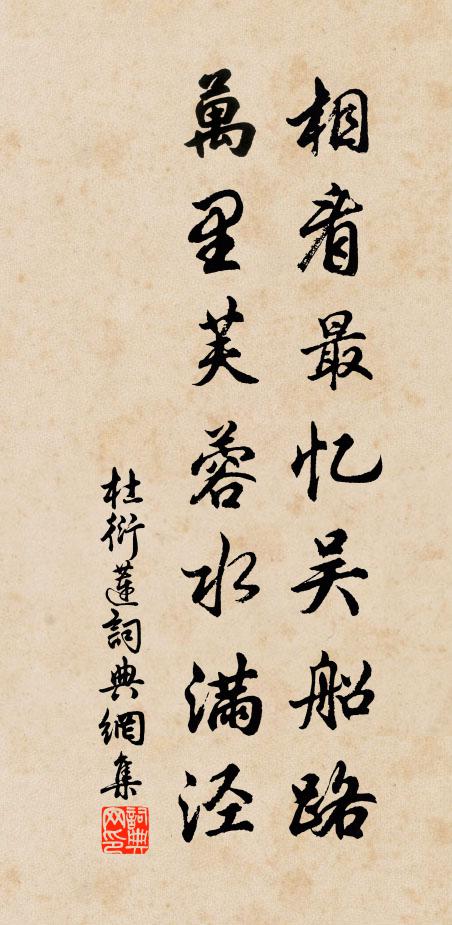 相看最忆吴船路
萬里芙蓉水满泾
杜衍蓮詞典網集
詞典网印